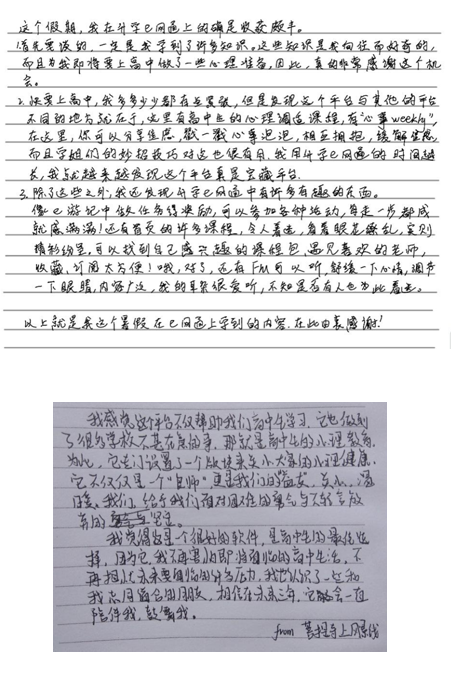 这个假期，我在升学e网通上的确是收获颇丰。
1.首先要说的，一定是我学到了许多知识。这些知识是我向往而好奇的，
而且为我即将要上高中做了一些心理准备，因此，真的非常感谢这个机
会。
2.快要上高中，我多多少少都有些紧张，但是发现这个平台与其他的平台
不同的地方就在于，这里有高中生的心理调适课程，有"心事weekly"，
在这里，你可以分享焦虑，戳一戳心事泡泡，相互拥抱，缓解焦虑，
而且学姐们的妙招技巧对这也很有用，我用升学e网通的时间越
长，我就越来越发现这个平台真是宝藏平台.
3.除了这些之外，我还发现升学e网通中有许多有趣的页面。
像e游记中做任务得奖励，可以参加各种活动，每走一步都成
就感满满！还有首页的许多课程，令人看去，看着眼花缭乱，实则
精彩纷呈，可以找到自己感兴趣的课程包、遇见喜欢的老师，
收藏、订阅太方便！哦，对了，还有FM可以听，舒缓一下心情，调节
一下眼睛，内容广泛，我的耳朵很爱听，不知是否有人也为此着迷。
以上就是我这个暑假在e网通上学到的内容.在此由衷感谢！
我感觉这个平台不仅帮助我们高中生学习，它也做到
了很多学校不甚在意的事，那就是高中生的心理教育.
为此，它专门设置了一个版块来关心大家的心理健康.
它不仅仅是一个"良师"，更是我们的益友，关心、温
暖、我们，给予我们面对困难的勇气与不轻言放
弃的坚定。
我觉得这是一个很好的软件，是高中生的最佳选
择，因为它，我不再害怕即将面临的高中生活，不
再担忧未来要面临的许多压力，我也认识了一些和
我志同道合的朋友，相信在未来三年，它都会一直
陪伴我，鼓舞我。
from 菩提寺上